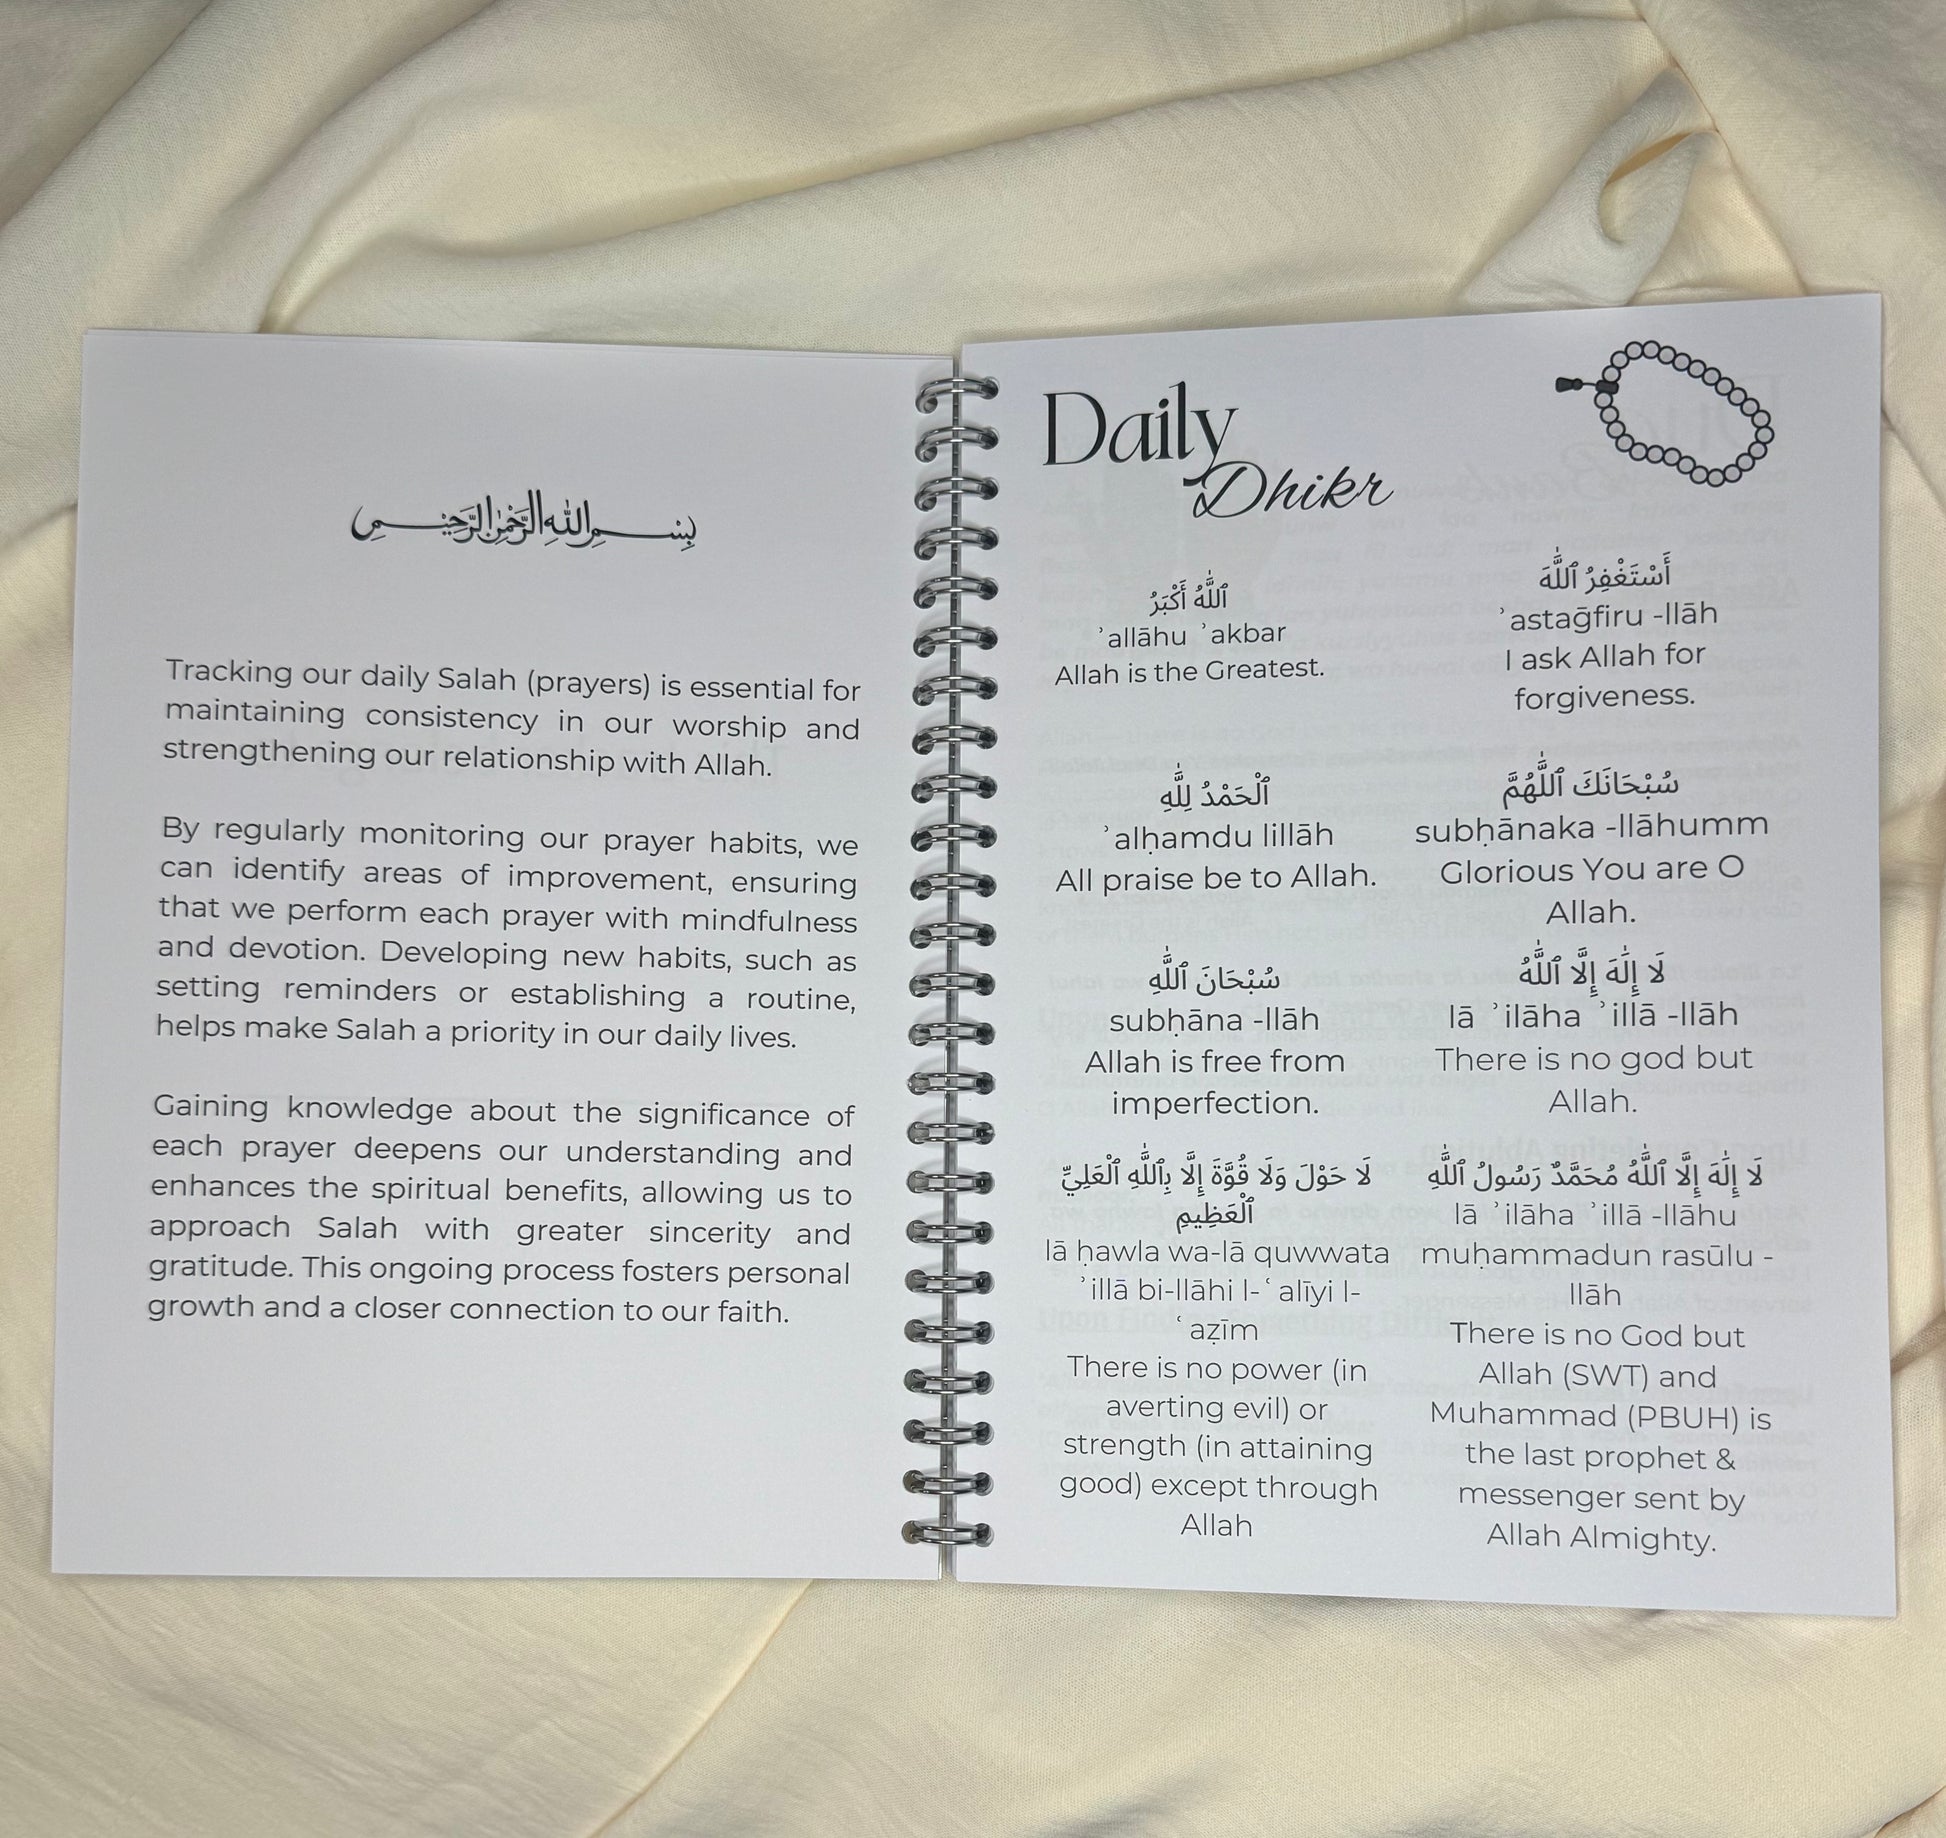 بِسْمِ اللهِ الرَّحْمٰنِ الرَّحِيمِ
Tracking our daily Salah (prayers) is essential for
maintaining consistency in our worship and
strengthening our relationship with Allah.
By regularly monitoring our prayer habits, we
can identify areas of improvement, ensuring
that we perform each prayer with mindfulness
and devotion. Developing new habits, such as
setting reminders or establishing a routine,
helps make Salah a priority in our daily lives.
Gaining knowledge about the significance of
each prayer deepens our understanding and
enhances the spiritual benefits, allowing us to
approach Salah with greater sincerity and
gratitude. This ongoing process fosters personal
growth and a closer connection to our faith.
Daily
Dhikr
ٱللَّٰهُ أَكْبَرُ
ʾallāhu ʾakbar
Allah is the Greatest.
أَسْتَغْفِرُ ٱللَّٰهَ
ʾastaḡfiru -llāh
I ask Allah for
forgiveness.
ٱلْحَمْدُ لِلَّٰهِ
ʾalḥamdu lillāh
All praise be to Allah.
سُبْحَانَكَ ٱللَّٰهُمَّ
subḥānaka -llāhumm
Glorious You are O
Allah.
سُبْحَانَ ٱللَّٰهِ
subḥāna -llāh
Allah is free from
imperfection.
لَا إِلَٰهَ إِلَّا ٱللَّٰهُ
lā ʾilāha ʾillā -llāh
There is no god but
Allah.
لَا حَوْلَ وَلَا قُوَّةَ إِلَّا بِٱللَّٰهِ ٱلْعَلِيِّ
ٱلْعَظِيمِ
lā ḥawla wa-lā quwwata
ʾillā bi-llāhi l-ʿalīyi l-
ʿaẓīm
There is no power (in
averting evil) or
strength (in attaining
good) except through
Allah
لَا إِلَٰهَ إِلَّا ٱللَّٰهُ مُحَمَّدٌ رَسُولُ ٱللَّٰهِ
lā ʾilāha ʾillā -llāhu
muḥammadun rasūlu -
llāh
There is no God but
Allah (SWT) and
Muhammad (PBUH) is
the last prophet &
messenger sent by
Allah Almighty.